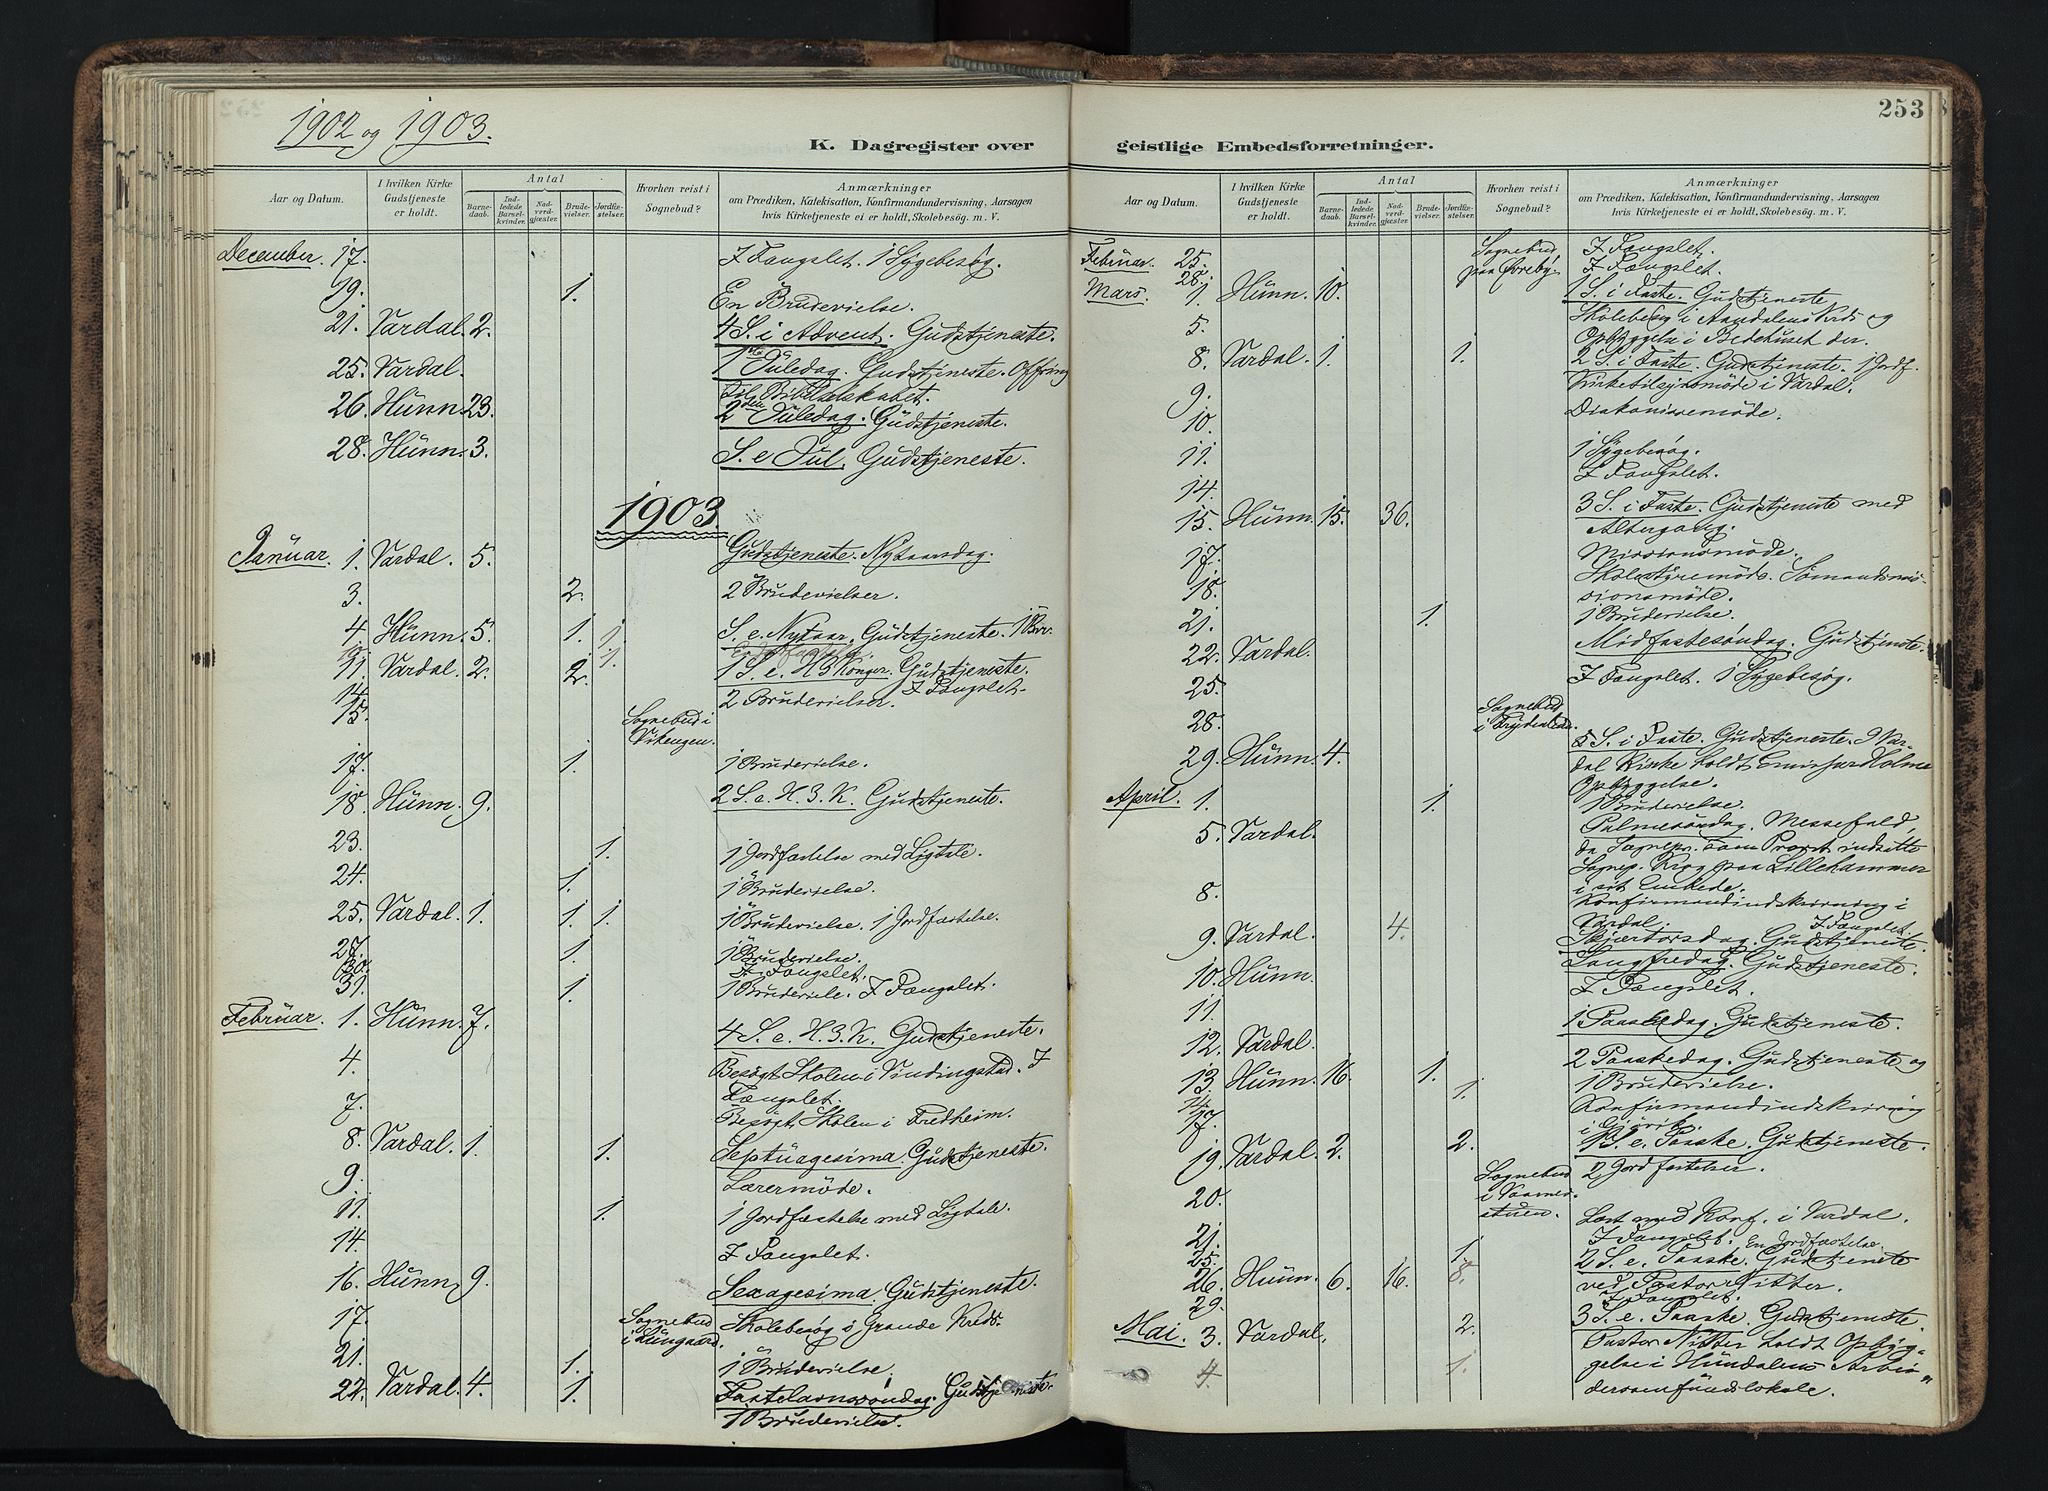 1902 og 1903.
K. Dagregister over
Aar og Datum.
I hvilken Kirke Gudstjeneste er holdt.
Antal
Barne-daab.
Ind-ledede Barsel-kvinder.
Nad-verd-gjæster.
Brude-vielser.
Jordfæ-stelser.
Hvorhen reist i Sognebud?
Anmærkninger
om Prædiken, Katekisation, Konfirmandundervisning, Aarsagen
hvis Kirketjeneste ei er holdt, Skolebesøg. m. V.
December. 17. I Fængslet. 1 Sygebesøg.
19. 1. En Brudevielse.
21. Vardal. 2. 4 S. i Advent. Gudstjeneste.
25. Vardal. 1ste Juledag. Gudstjeneste. Offring
til Bibelselskabet.
26. Hunn 23. 2den Juledag. Gudstjeneste.
28. Hunn. 3. S. e Jul. Gudstjeneste.
1903.
Januar. 1. Vardal. 5. Gudstjeneste. Nytaarsdag.
3. 2. 2 Brudevielser.
4. Hunn. 5. 1. 1. S. e. Nytaar. Gudstjeneste. 1 Br.
9. 1.
11. Vardal. 2. 2. 1 S. e. H 3 Konger. Gudstjeneste.
14. 2 Brudevielser. I Fængslet.
15. Sognebud i
Vikengen.
17. 1. 1 Brudevielse.
18. Hunn. 9. 2 S. e. H. 3. K. Gudstjeneste.
23. 1. 1 Jordfæstelse med Ligtale.
24. 1. 1 Brudevielse.
25. Vardal. 1. 1. 1. 1 Brudevielse. 1 Jordfæstelse.
27. 1. 1 Brudevielse.
30. I Fængslet.
31. 1. 1 Brudeviele. I Fængslet.
Februar. 1. Hunn. 7. 4 S. e. H. 3. K. Gudstjeneste.
4. Besøgt Skolen i Vindingstad. I
Fængslet.
7. Besøgt Skolen i Fredheim.
8. Vardal. 1. 1. Septuagesima. Gudstjeneste.
9. Lærermøde.
11. 1. 1 Jordfæstelse med Ligtale.
14. I Fængslet.
16. Hunn. 9. Sexagesima. Gudstjeneste.
17. Sognebud Skolebesøg i Grande Kreds.
21. 1. 1 Brudevielse.
22. Vardal. 4. 1. Fastelavnssøndag. Gudstjeneste.
1 Brudevielse.
253
geistlige Embedsforretninger.
Aar og Datum.
I hvilken Kirke Gudstjeneste er holdt.
Antal
Barne-daab.
Ind-ledede Barsel-kvinder.
Nad-verd-gjæster.
Brude-vielser.
Jordfæ-stelser.
Hvorhen reist i Sognebud?
Anmærkninger
om Prædiken, Katekisation, Konfirmandundervisning, Aarsagen
hvis Kirketjeneste ei er holdt, Skolebesøg. m. V.
Februar. 25. Sognebud I Fængslet.
28. paa Øvreby. I Fængslet.
Mars. 1. Hunn. 10. 1 S. i Faste. Gudstjeneste
5. Skolebesøg i Aandalens Kreds og
Opbyggelse i Bedehuset der.
8. Vardal. 1. 1. 2 S. i Faste. Gudstjeneste. 1 Jordf.
9. Kirketilsynsmøde i Vardal.
10. Diakonissemøde.
11. 1 Sygebesøg.
14. I Fængslet.
15. Hunn. 15. 36. 3 S. i Faste. Gudstjeneste med
Altergang.
17. Missionsmøde.
18. Skolestyremøde. Sømandsmis-
sionsmøde.
21. 1. 1 Brudevielse.
22. Vardal. Midfastesøndag. Gudstjeneste.
25. I Fængslet. 1 Sygebesøg.
28. Sognebud
29. Hunn. 4. 5 S. i Faste. Gudstjeneste. I Var-
dal Kirke holdt Emissær Holme
Opbyggelse.
April. 1. 1. 1 Brudevielse.
5. Vardal. Palmesøndag. Messefald,
da Sognepr. som Provst indsatte
Sognep. Krog paa Lillehammer
i sit Embede.
8. Konfirmandindskrivning i
Vardal. I Fængslet.
9. Vardal. 4. Skjærtorsdag. Gudstjeneste.
10. Hunn. Langfredag. Gudstjeneste.
11. I Fængslet.
12. Vardal. 1 Paaskedag. Gudstjeneste.
13. Hunn. 16. 1. 2 Paaskedag. Gudstjeneste og
1 Brudevielse.
14. 1.
17. Konfirmandindskrivning
i Gjøvik.
19. Vardal. 2. 2. 1 S. e. Paaske. Gudstjeneste.
2 Jordfæstelser.
20. Sognebud
i
stuen.
21. Læst med Konf. i Vardal.
25. 1. I Fængslet. En Jordfæstelse.
26. Hunn. 6. 16. 2 S. e. Paaske. Gudstjeneste
ved Pastor Nitter.
29. I Fængslet.
Mai. 3. Vardal. 2. 3 S. e. Paaske. Gudstjeneste.
Pastor Nitter holdt Opbyg-
4. 1. gelse i Hundalens Arbei-
dersamfundslokale.